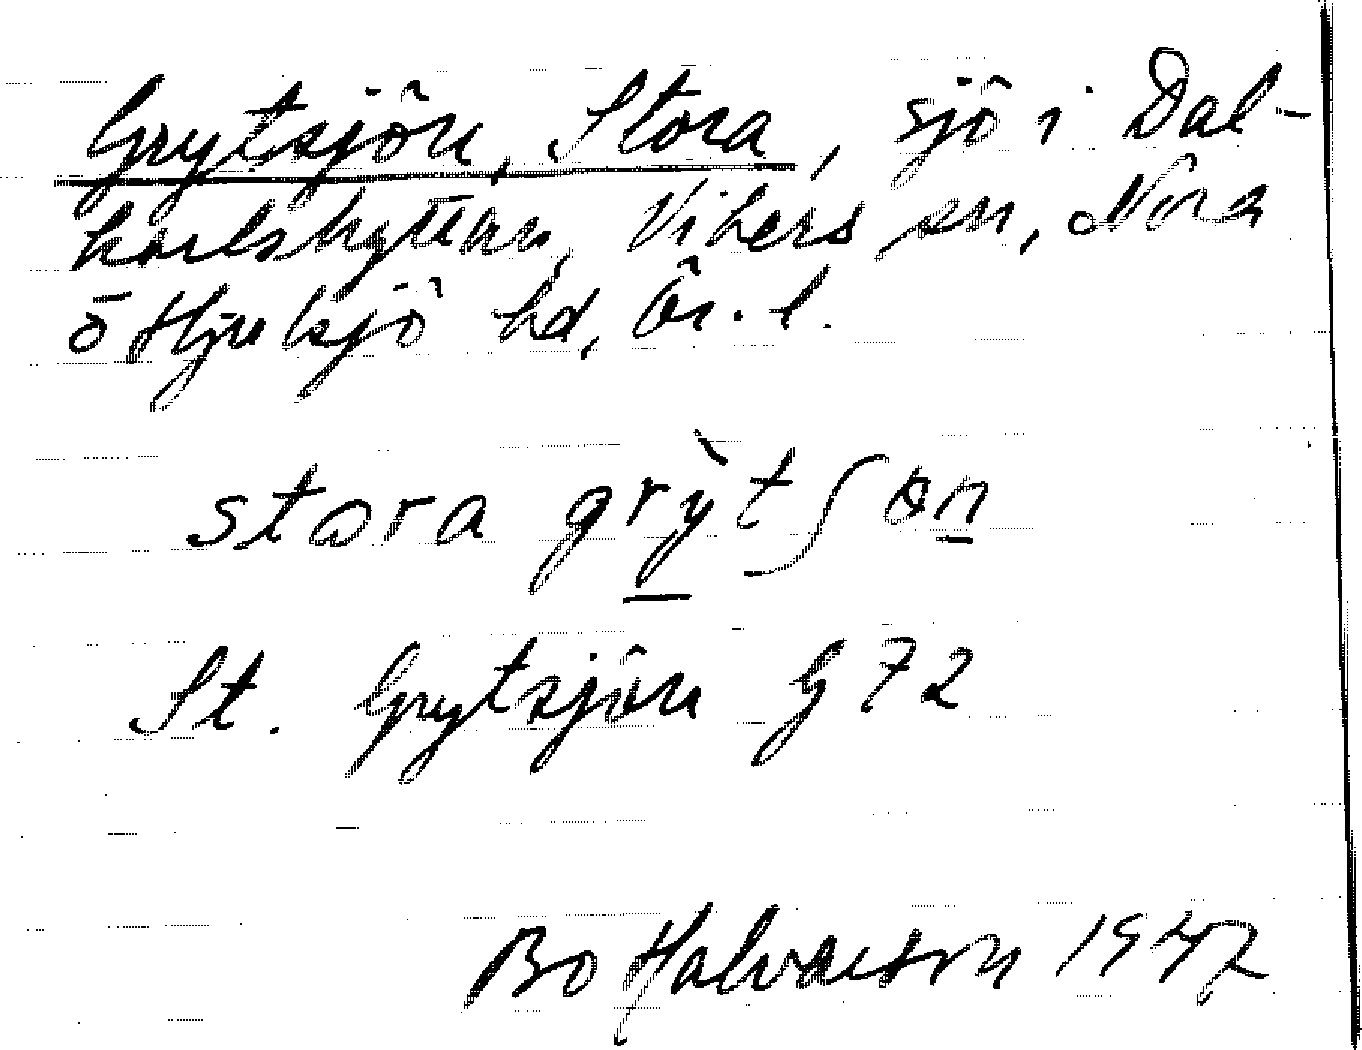 Grytsjön, Stora, sjö i Dal-
karlshyttan, Vikers sn, Nora
o Hjulsjö hd, Ör. l.
stora grỳtʃɵn
St. Grytsjön G 72
Bo Halvarson 1942